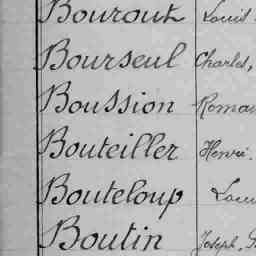 Bourout Louis
Bourseul Charles,
Boussion Roma
Bouteiller Henri.
Bouteloup Loui
Boutin Joseph,